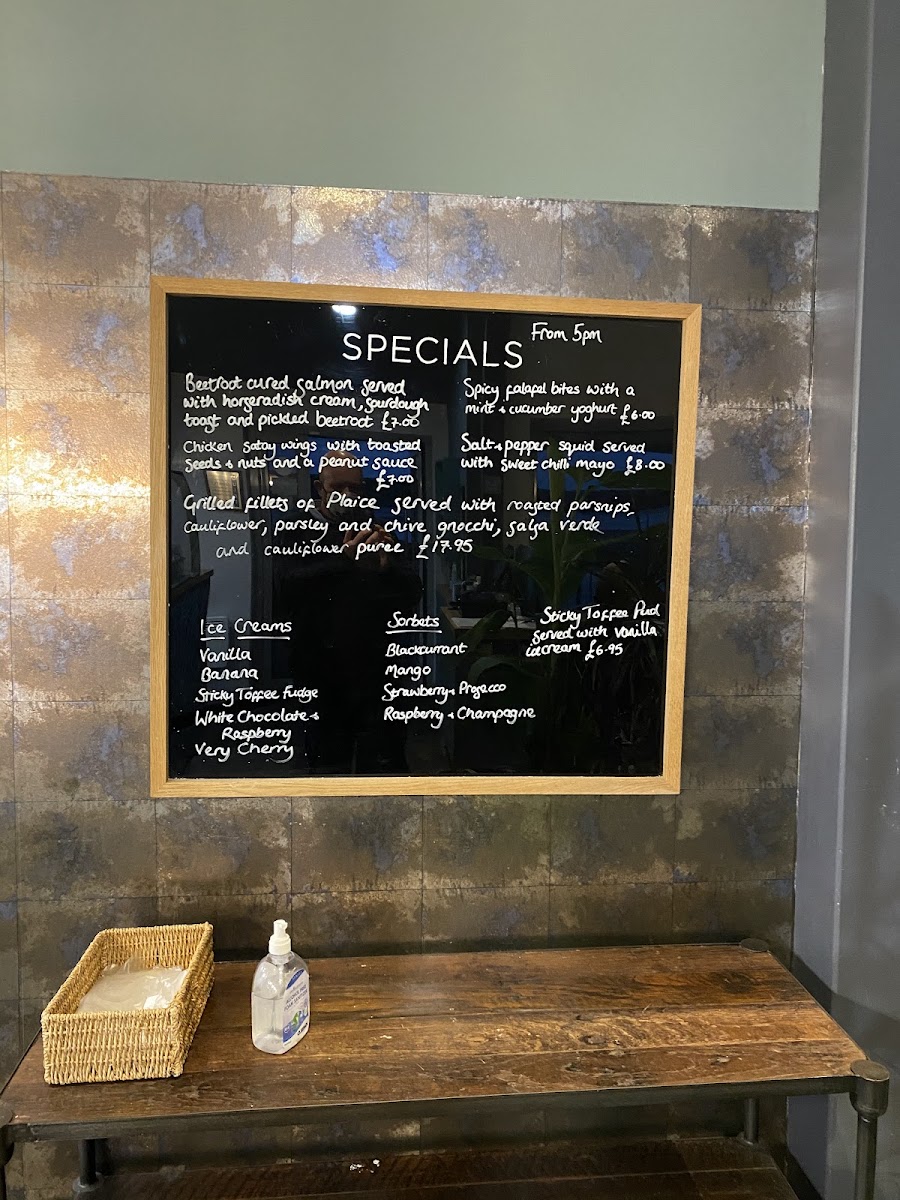 SPECIALS
From 5pm
Beetroot cured salmon served
with horseradish cream, sourdough
toast and pickled beetroot £7.00
Chicken satay wings with toasted
seeds + nuts and a peanut sauce
£7.00
Spicy falafel bites with a
mint + cucumber yoghurt £6.00
Salt + pepper squid served
with sweet chilli mayo £8.00
Grilled fillets of Plaice served with roasted parsnips,
cauliflower, parsley and chive gnocchi, salsa verde
and cauliflower puree £17.95
Ice Creams
Vanilla
Banana
Sticky Toffee Fudge
White Chocolate +
Raspberry
Very Cherry
Sorbets
Blackcurrant
Mango
Strawberry + Prosecco
Raspberry + Champagne
Sticky Toffee Pud
served with vanilla
icecream £6.95